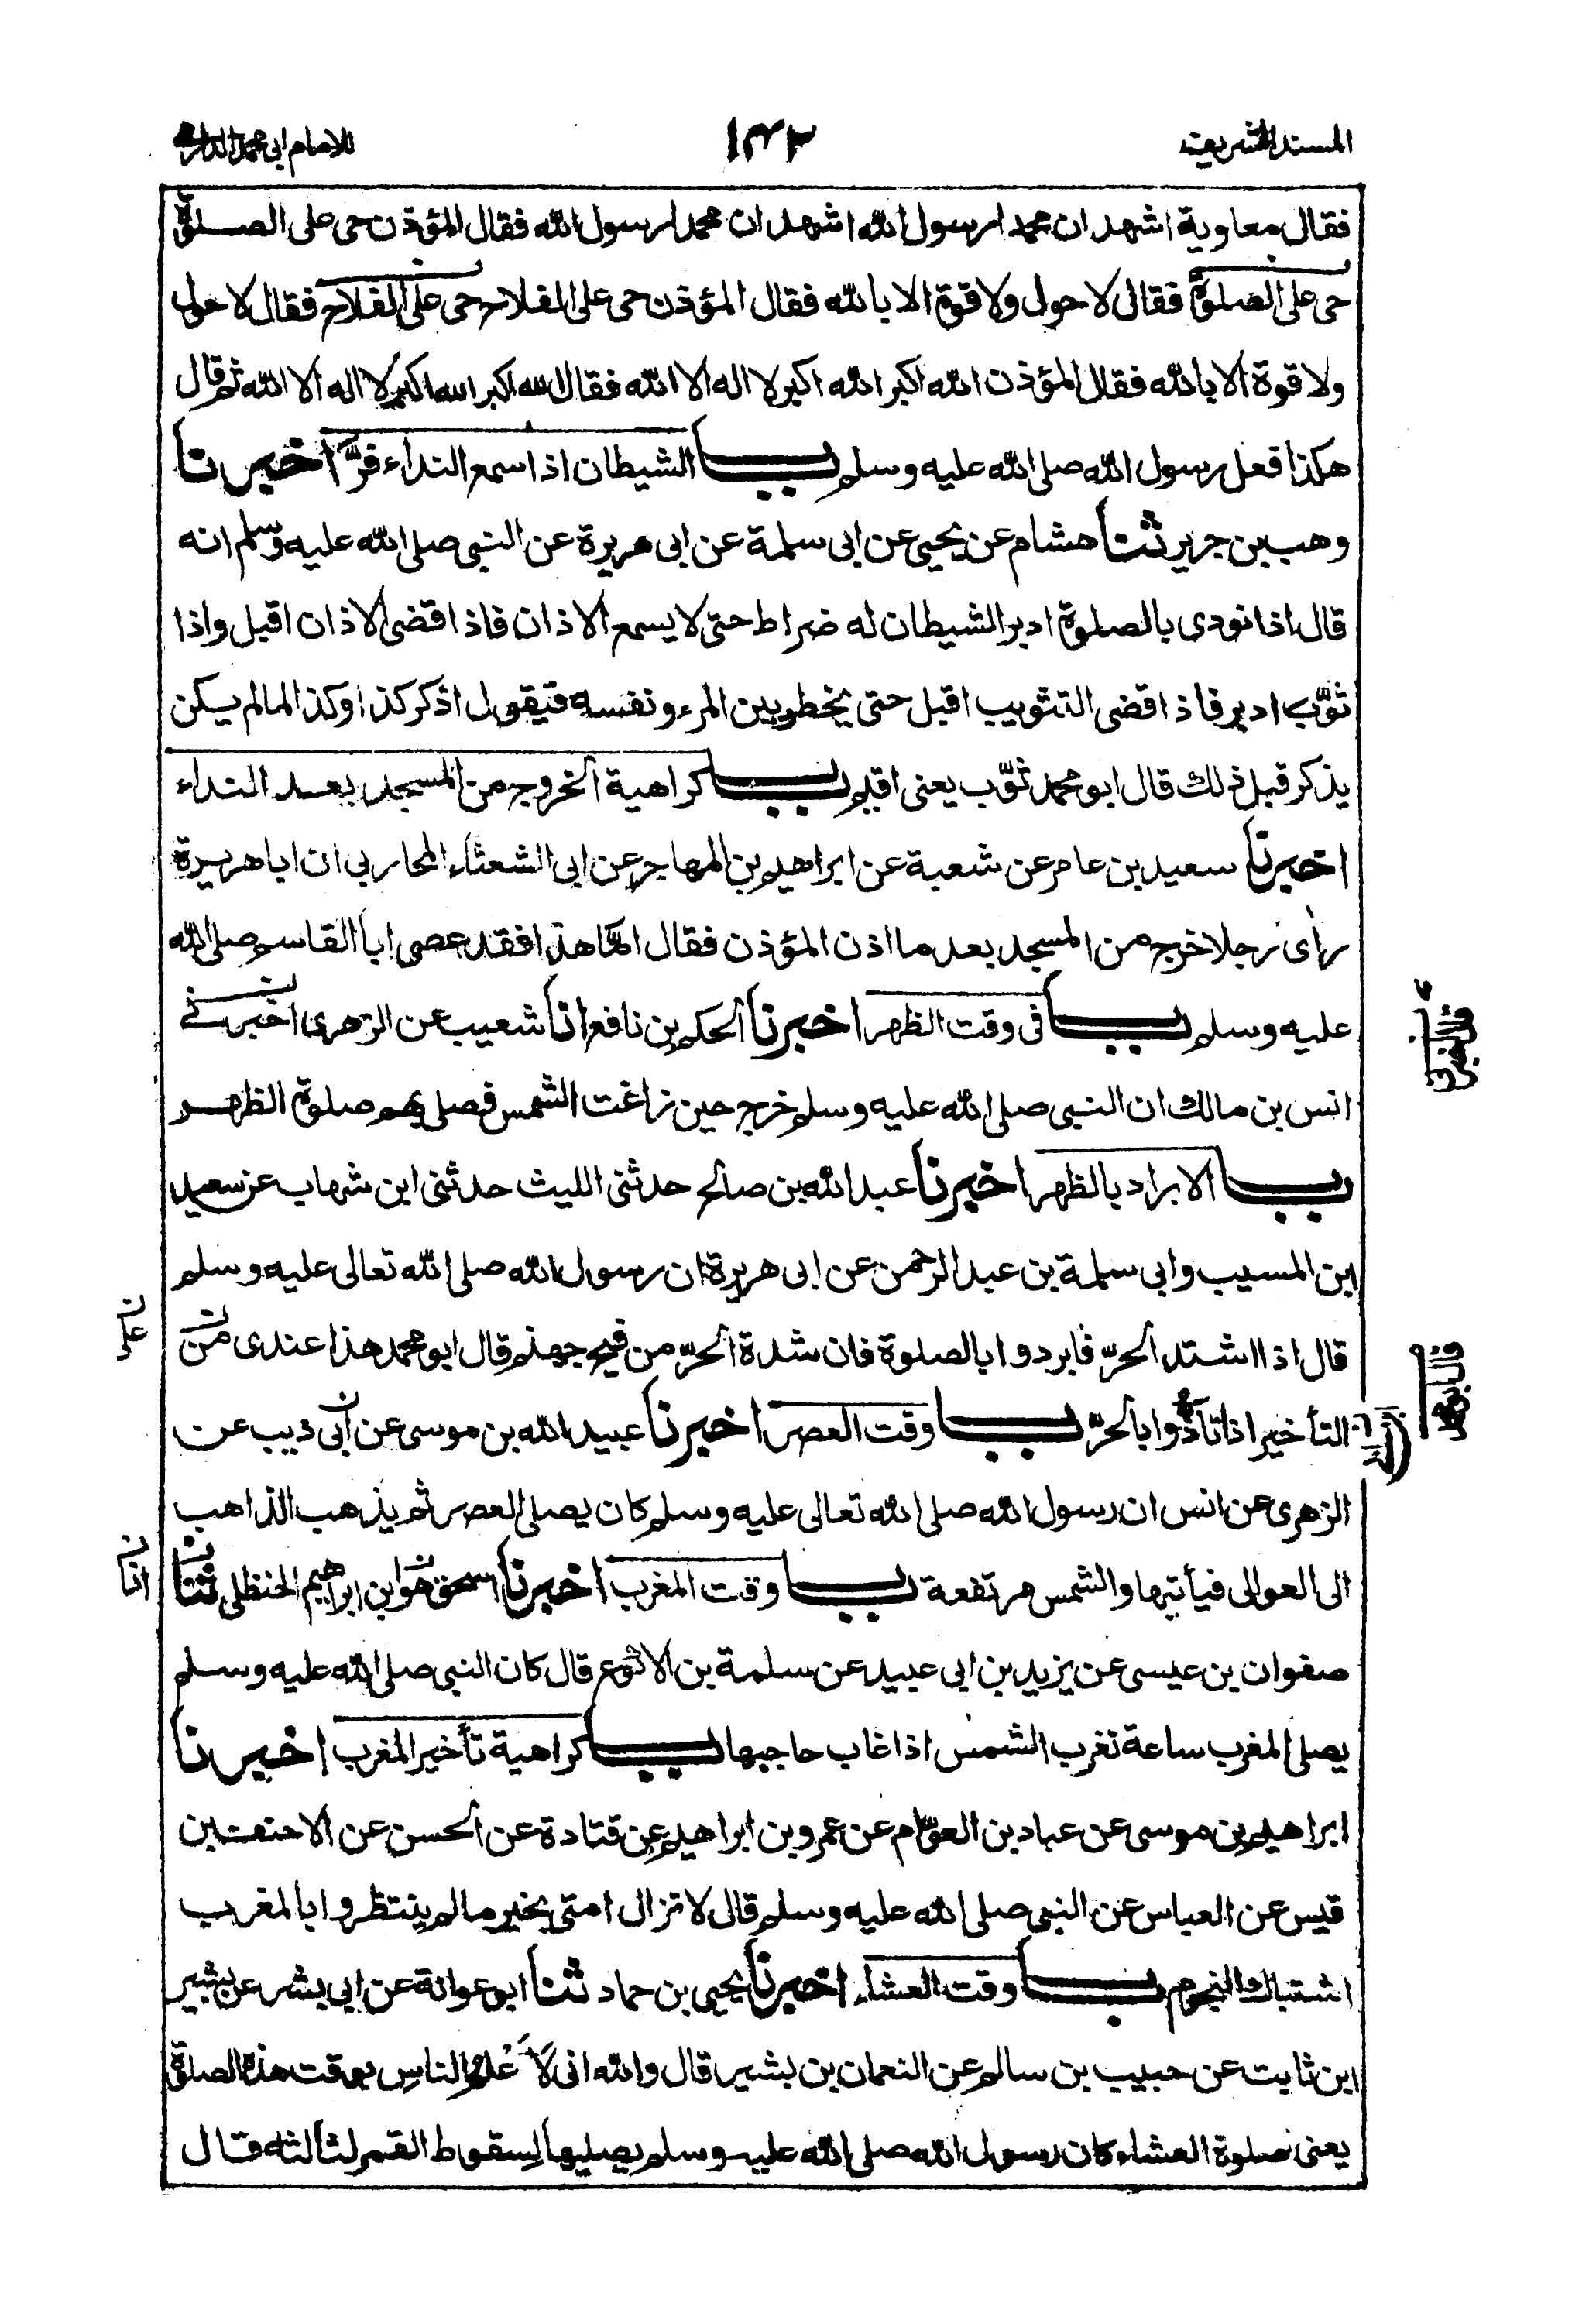 المسند الشريف ١٤٢ للامام ابى محمد الدارمى
فقال معاوية اشهد ان محمدا رسول الله اشهد ان محمدا رسول الله فقال المؤذن حى على الصلوة
حى على الصلوة فقال لا حول ولا قوة الا بالله فقال المؤذن حى على الفلاح حى على الفلاح فقال لا حول
ولا قوة الا بالله فقال المؤذن الله اكبر الله اكبر لا اله الا الله فقال الله اكبر الله اكبر لا اله الا الله ثم قال
هكذا فعل رسول الله صلى الله عليه وسلم باب الشيطان اذا سمع النداء فرّ اخبرنا
وهب بن جرير ثنا هشام عن يحيى عن ابى سلمة عن ابى هريرة عن النبى صلى الله عليه وسلم انه
قال اذا نودى بالصلوة ادبر الشيطان له ضراط حتى لا يسمع الاذان فاذا قضى الاذان اقبل واذا
ثوّب ادبر فاذا قضى التثويب اقبل حتى يخطر بين المرء ونفسه فيقول اذكر كذا وكذا لما لم يكن
يذكر قبل ذلك قال ابو محمد ثوّب يعنى اقيم باب كراهية الخروج من المسجد بعد النداء
اخبرنا سعيد بن عامر عن شعبة عن ابراهيم بن المهاجر عن ابى الشعثاء المحاربى ان ابا هريرة
رأى رجلا خرج من المسجد بعد ما اذن المؤذن فقال امّا هذا فقد عصى ابا القاسم صلى الله
عليه وسلم باب فى وقت الظهر اخبرنا الحكم بن نافع انا شعيب عن الزهرى اخبرنى
قال اخبرنى
انس بن مالك ان النبى صلى الله عليه وسلم خرج حين زاغت الشمس فصلى بهم صلوة الظهر
باب الابراد بالظهر اخبرنا عبد الله بن صالح حدثنى الليث حدثنى ابن شهاب عن سعيد
ابن المسيب وابى سلمة بن عبد الرحمن عن ابى هريرة ان رسول الله صلى الله تعالى عليه وسلم
قال اذا اشتد الحرّ فابردوا بالصلوة فان شدة الحرّ من فيح جهنم قال ابو محمد هذا عندى من
على
التأخير اذا تأذّوا بالحرّ باب وقت العصر اخبرنا عبيد الله بن موسى عن ابى ذيب عن
الزهرى عن انس ان رسول الله صلى الله تعالى عليه وسلم كان يصلى العصر ثم يذهب الذاهب
الى العوالى فيأتيها والشمس مرتفعة باب وقت المغرب اخبرنا اسحق هو ابن ابراهيم الحنظلى ثنا
انا
صفوان بن عيسى عن يزيد بن ابى عبيد عن سلمة بن الاكوع قال كان النبى صلى الله عليه وسلم
يصلى المغرب ساعة تغرب الشمس اذا غاب حاجبها باب كراهية تأخير المغرب اخبرنا
ابراهيم بن موسى عن عباد بن العوّام عن عمرو بن ابراهيم عن قتادة عن الحسن عن الاحنف بن
قيس عن العباس عن النبى صلى الله عليه وسلم قال لا تزال امتى بخير ما لم ينتظروا بالمغرب
اشتباك النجوم باب وقت العشاء اخبرنا يحيى بن حماد ثنا ابو عوانة عن ابى بشر عن بشير
ابن ثابت عن حبيب بن سالم عن النعمان بن بشير قال والله انى لَاَعْلَمُ الناسِ بوقت هذه الصلوة
يعنى صلوة العشاء كان رسول الله صلى الله عليه وسلم يصليها لسقوط القمر لثالثة قال